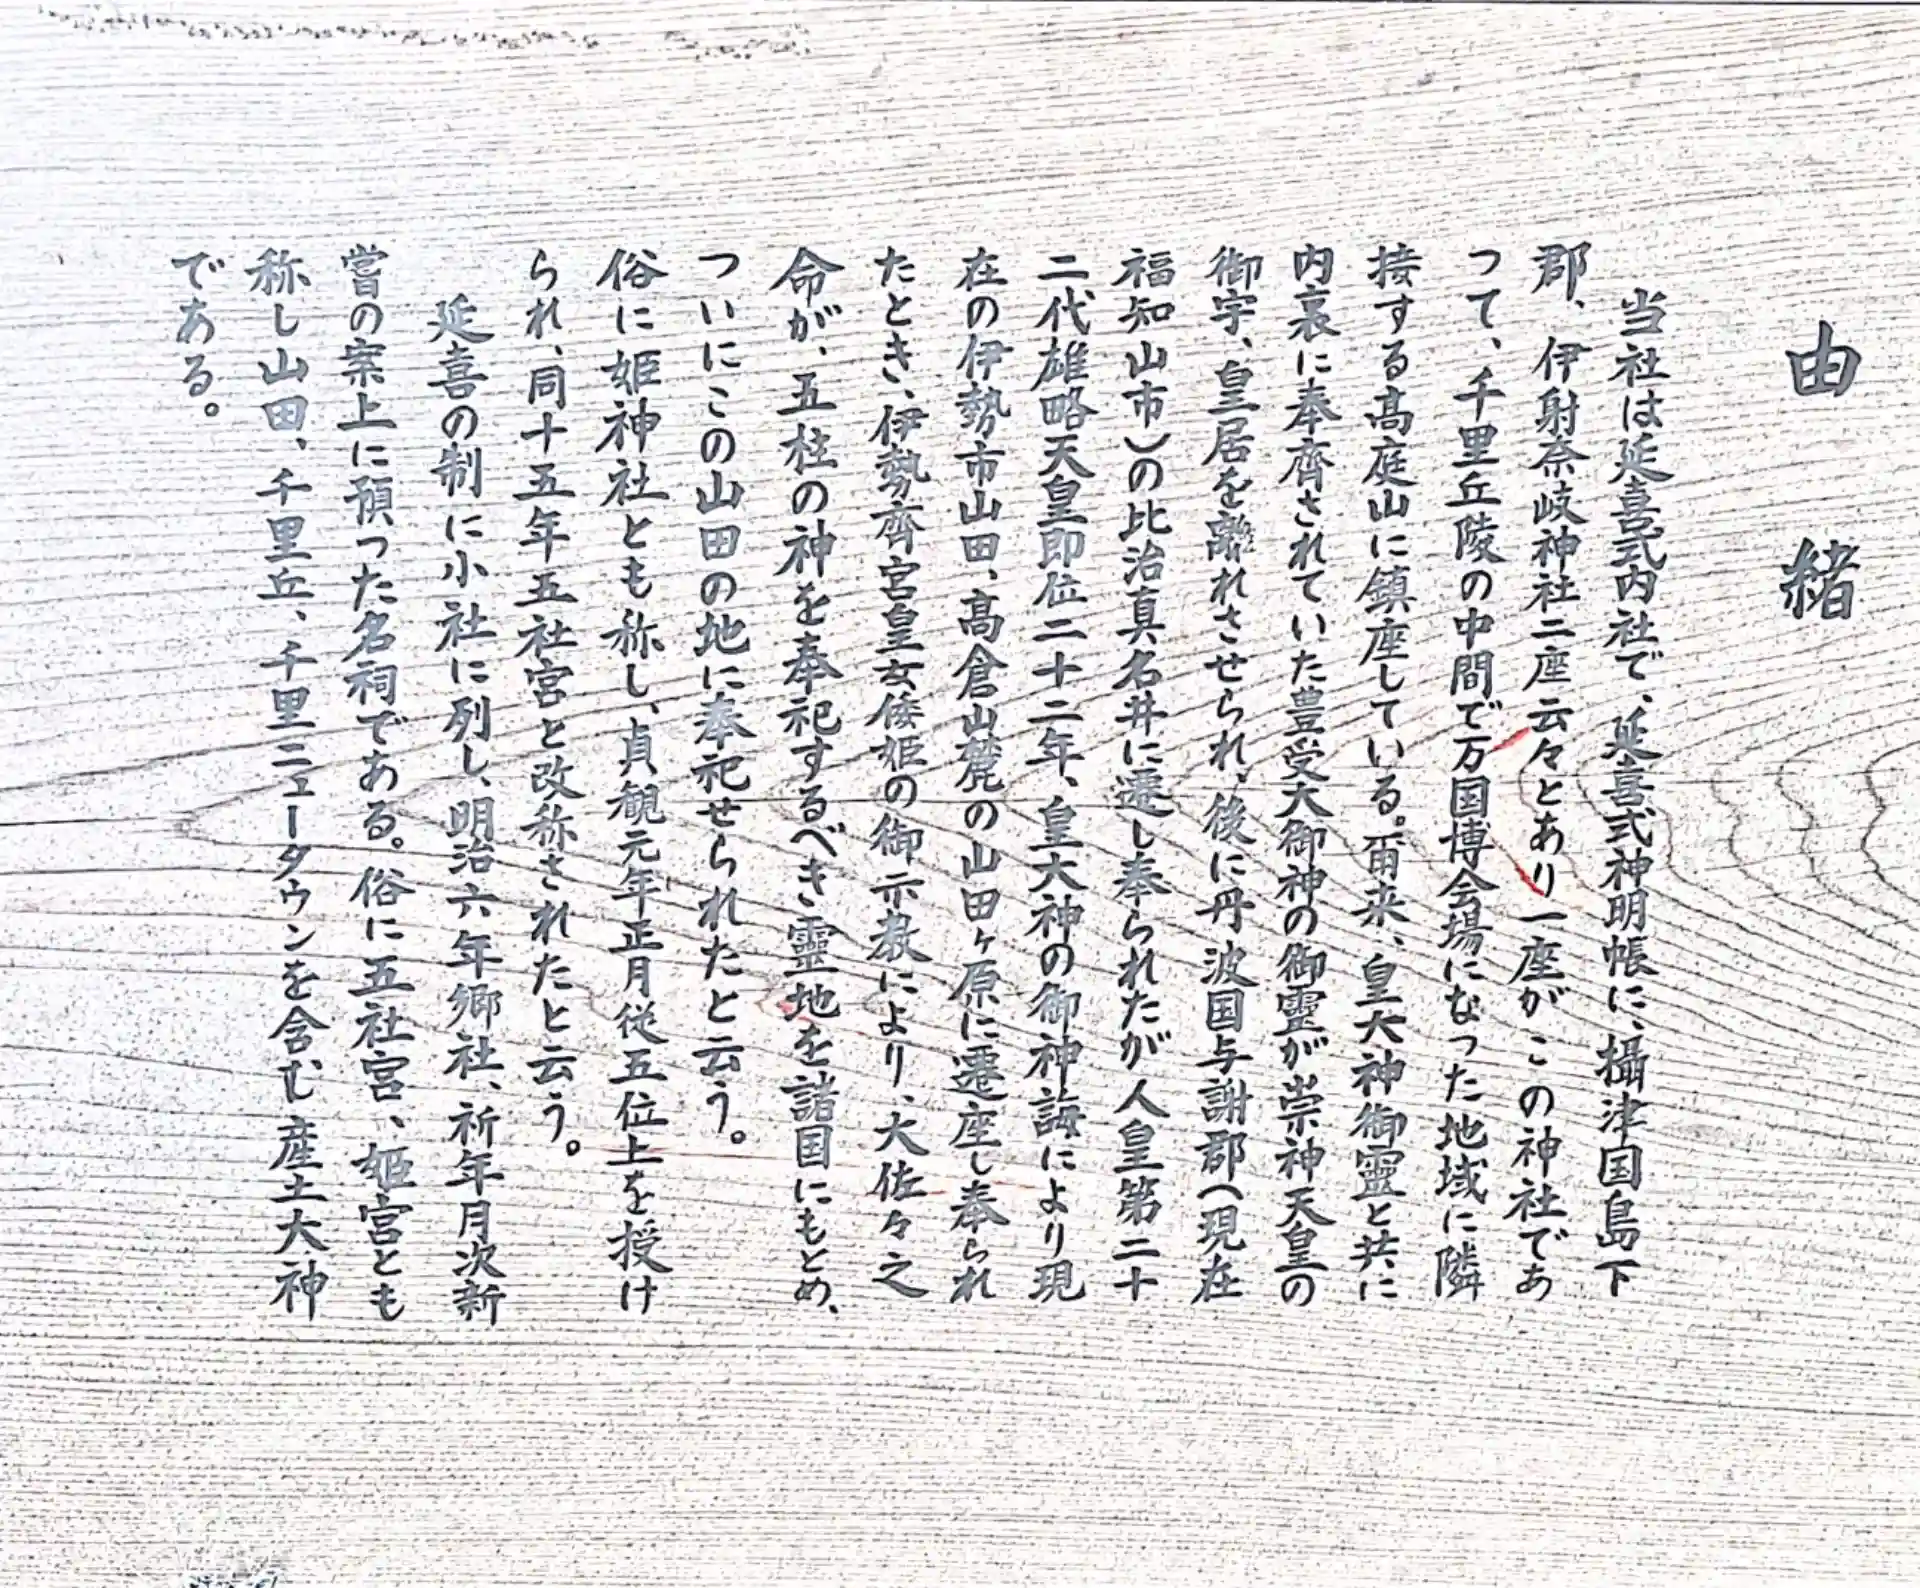 由緒
当社は延喜式内社で、延喜式神明帳に、攝津国島下
郡、伊射奈岐神社二座云々とあり一座がこの神社であ
って、千里丘陵の中間で万国博会場になった地域に隣
接する髙庭山に鎮座している。爾来、皇大神御霊と共に
内裏に奉齊されていた豊受大御神の御靈が崇神天皇の
御宇、皇居を離れさせられ、後に丹波国与謝郡(現在
福知山市)の比治真名井に遷し奉られたが人皇第二十
二代雄略天皇即位二十二年、皇大神の御神誨により現
在の伊勢市山田、髙倉山麓の山田ヶ原に遷座し奉られ
たとき、伊勢齊宮皇女倭姫の御示教により、大佐々之
命が、五柱の神を奉祀するべき靈地を諸国にもとめ、
ついにこの山田の地に奉祀せられたと云う。
俗に姫神社とも称し、貞観元年正月従五位上を授け
られ、同十五年五社宮と改称されたと云う。
延喜の制に小社に列し、明治六年郷社、祈年月次新
嘗の案上に預った名祠である。俗に五社宮、姫宮とも
称し山田、千里丘、千里ニュータウンを含む産土大神
である。